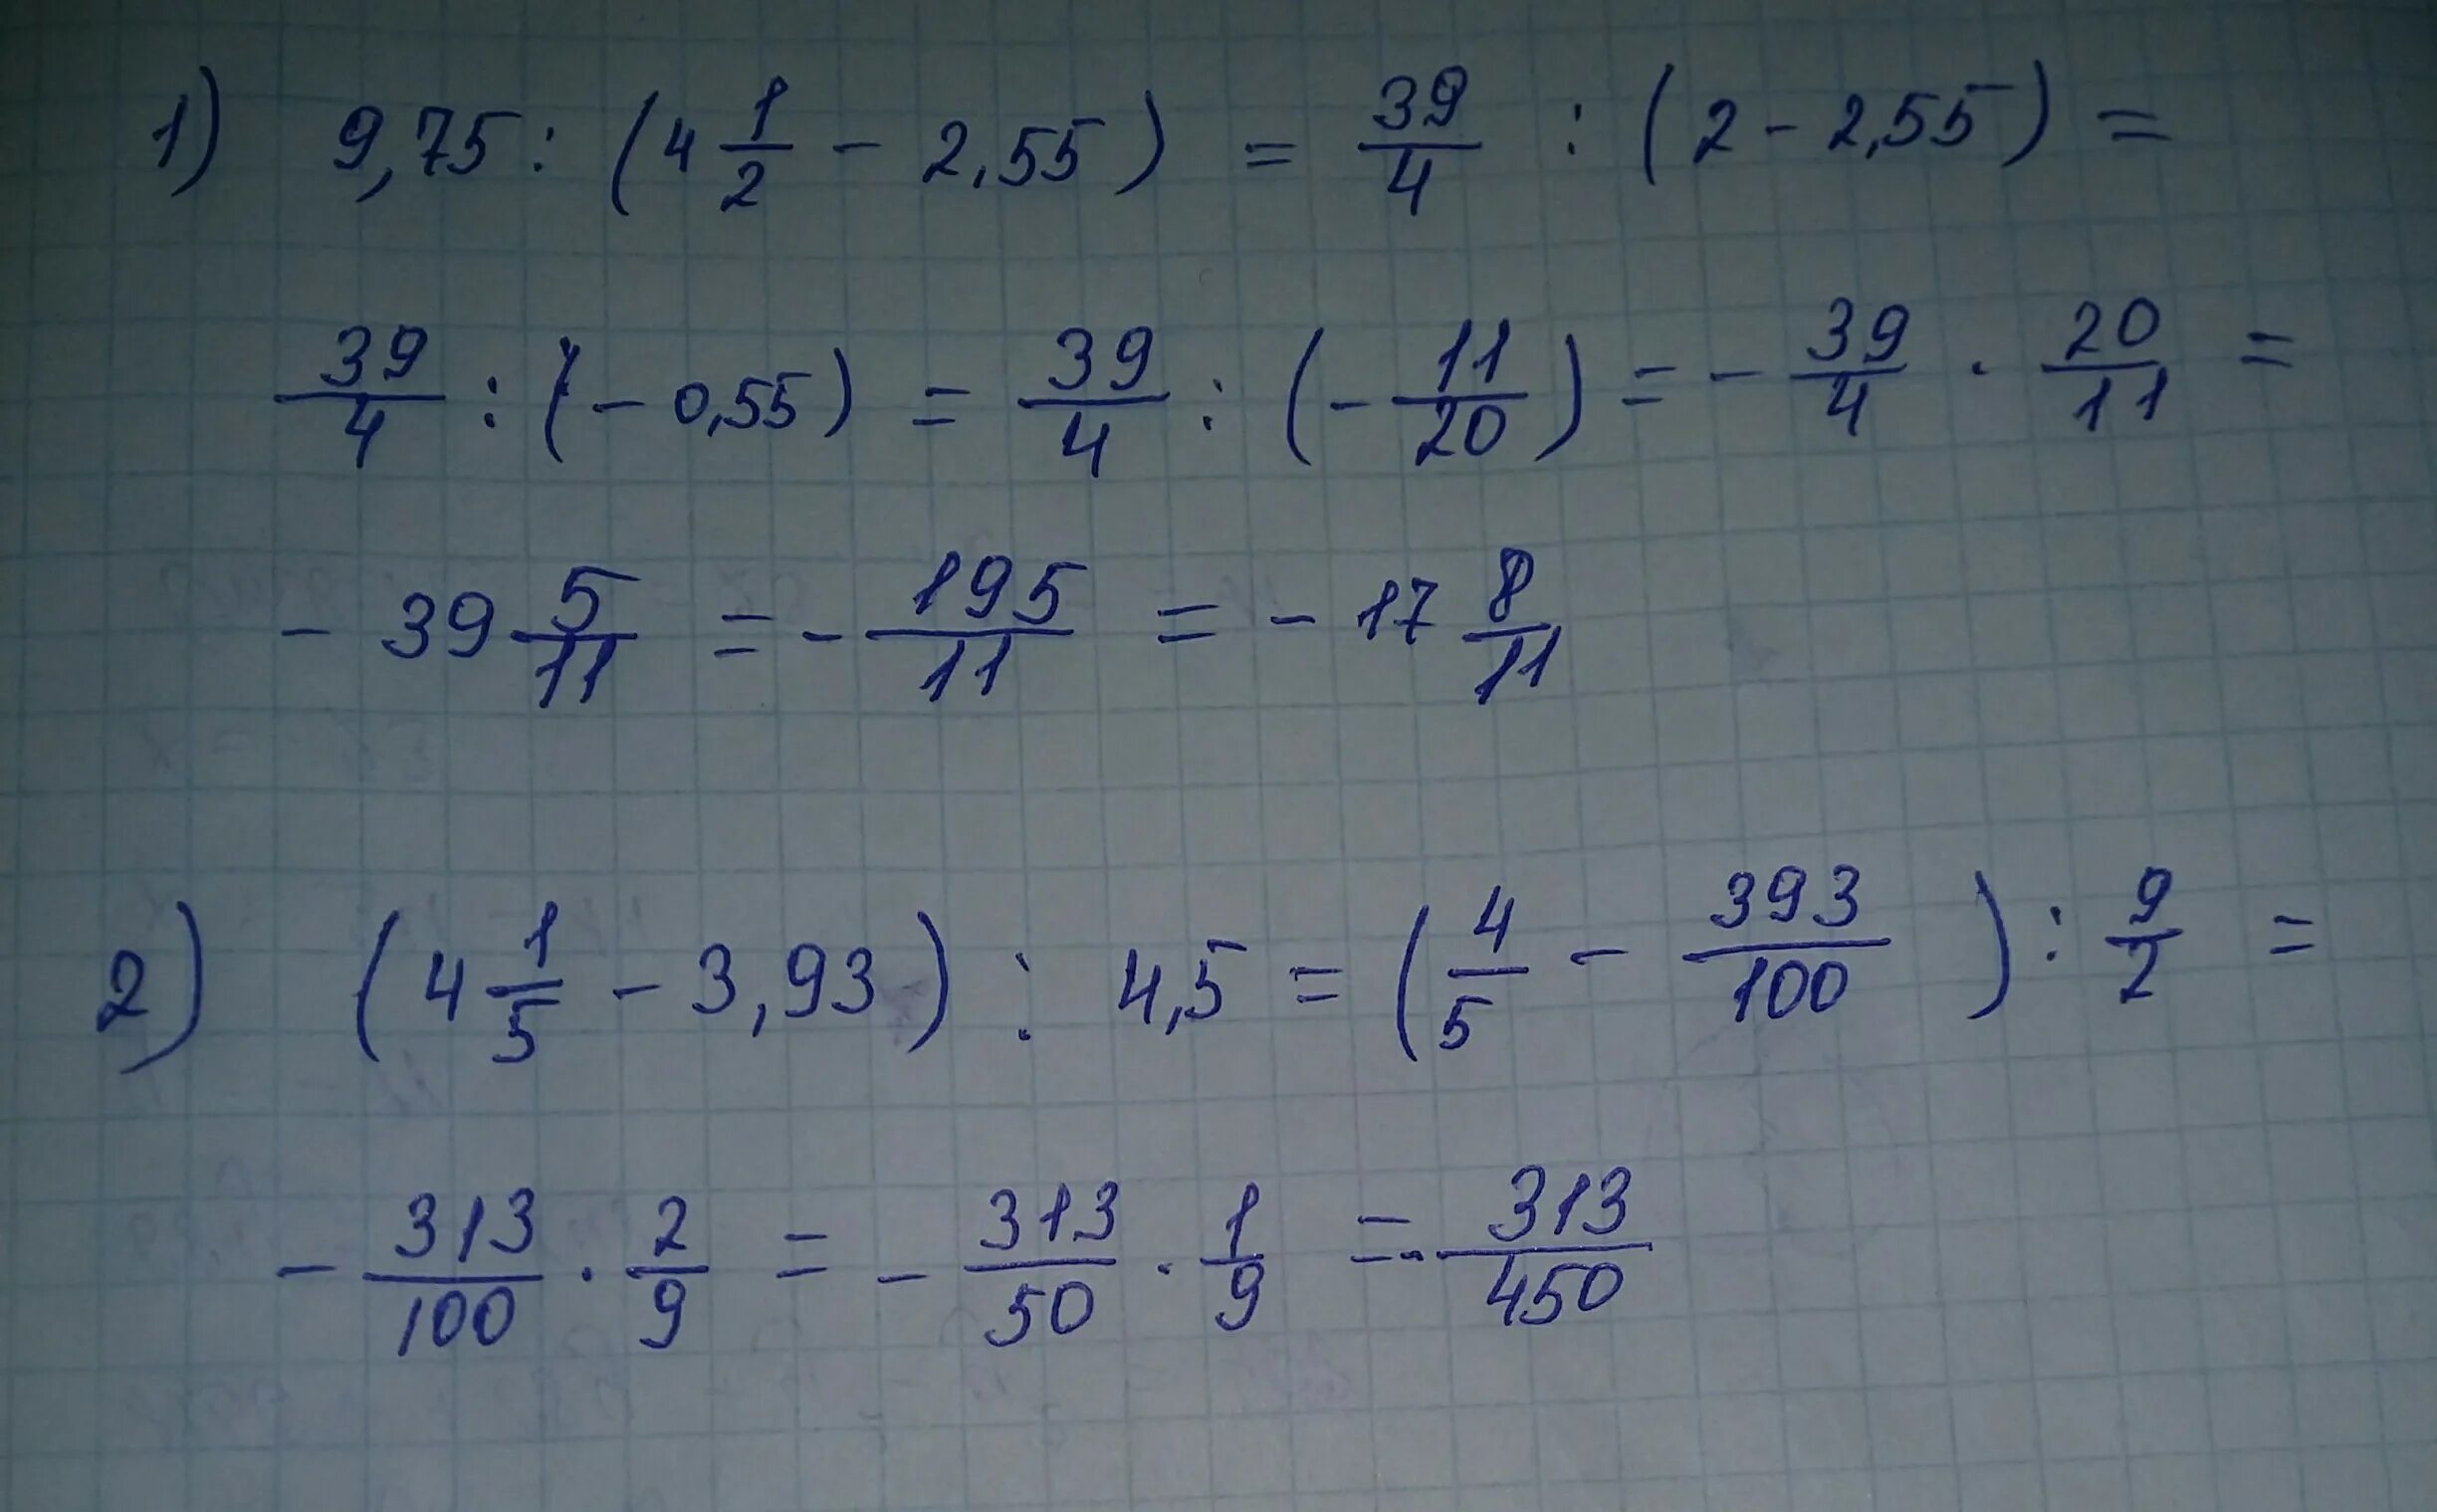 1) 9,75 : (4 1/2 - 2,55) = 39/4 : (2 - 2,55) =
39/4 : (- 0,55) = 39/4 : (- 11/20) = - 39/4 · 20/11 =
- 39 5/11 = - 195/11 = - 17 8/11
2) (4 1/5 - 3,93) : 4,5 = (4/5 - 393/100) : 9/2 =
- 313/100 · 2/9 = - 313/50 · 1/9 = - 313/450